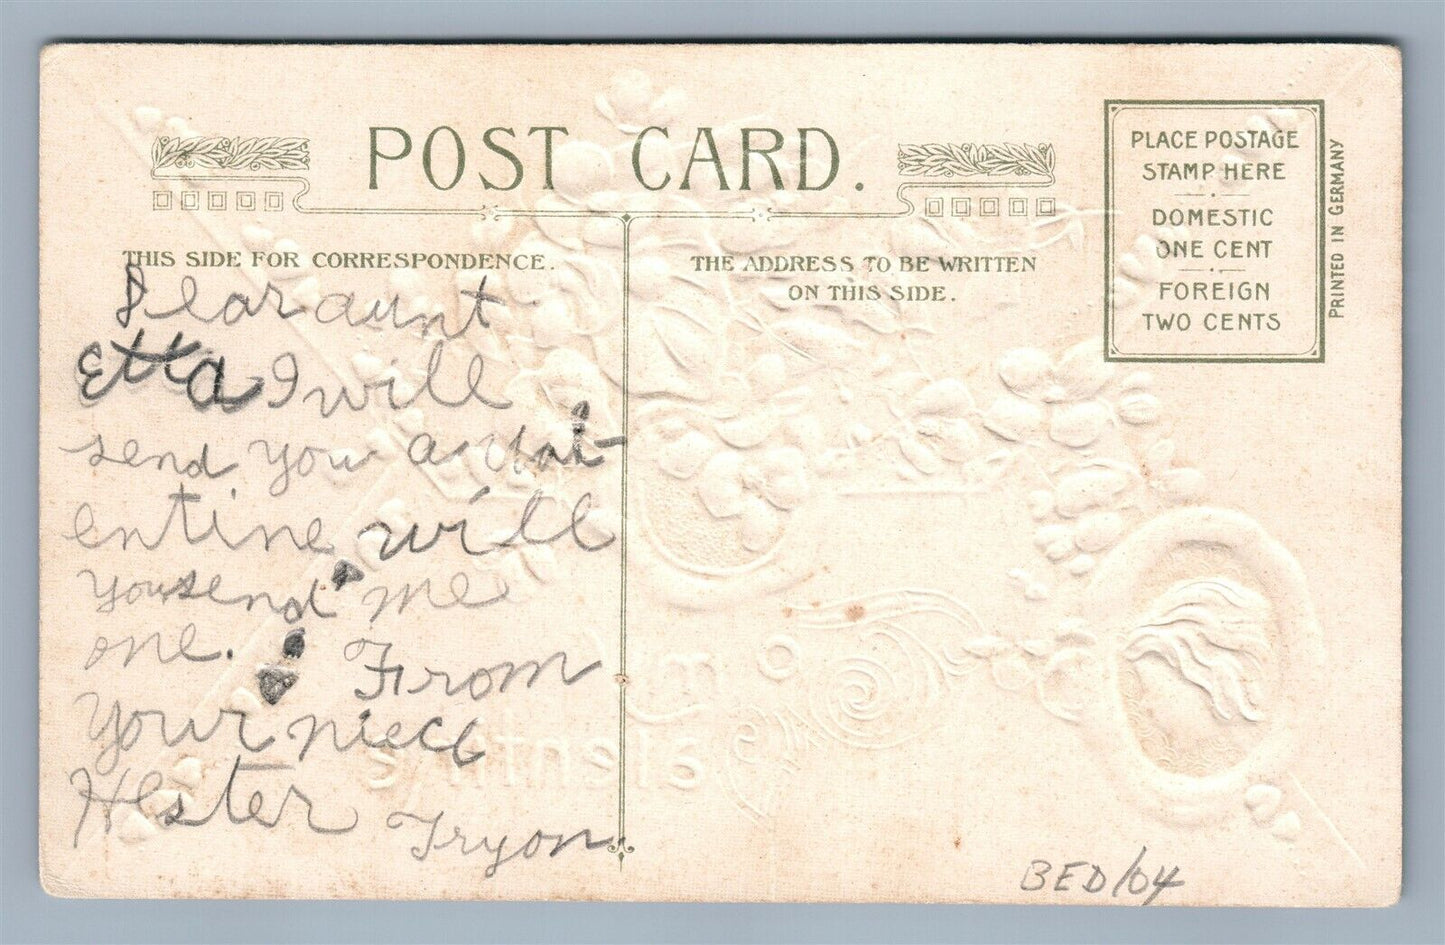 POST CARD.
THIS SIDE FOR CORRESPONDENCE.
THE ADDRESS TO BE WRITTEN
ON THIS SIDE.
PLACE POSTAGE
STAMP HERE
DOMESTIC
ONE CENT
FOREIGN
TWO CENTS
PRINTED IN GERMANY
Dear aunt
Etta I will
send you a Val-
entine will
you send me
one. From
Your niece
Hester Tryon.
BED/04